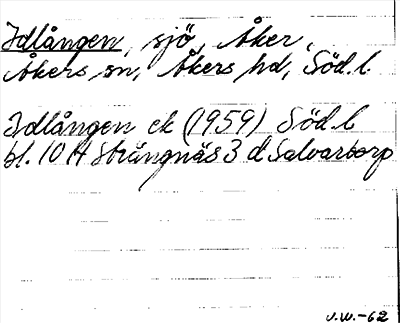 Idlången, sjö, Åker,
Åkers sn, Åkers hd, Söd.l.
Idlången ek (1959) Söd.l.
bl. 10 H Strängnäs 3 d Salvartorp
J.W.-62